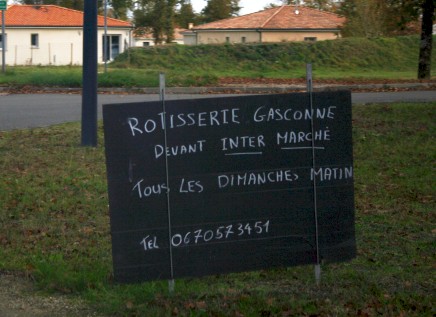 ROTISSERIE GASCONNE
DEVANT INTER MARCHÉ
TOUS LES DIMANCHES MATIN
TEL 0670573451